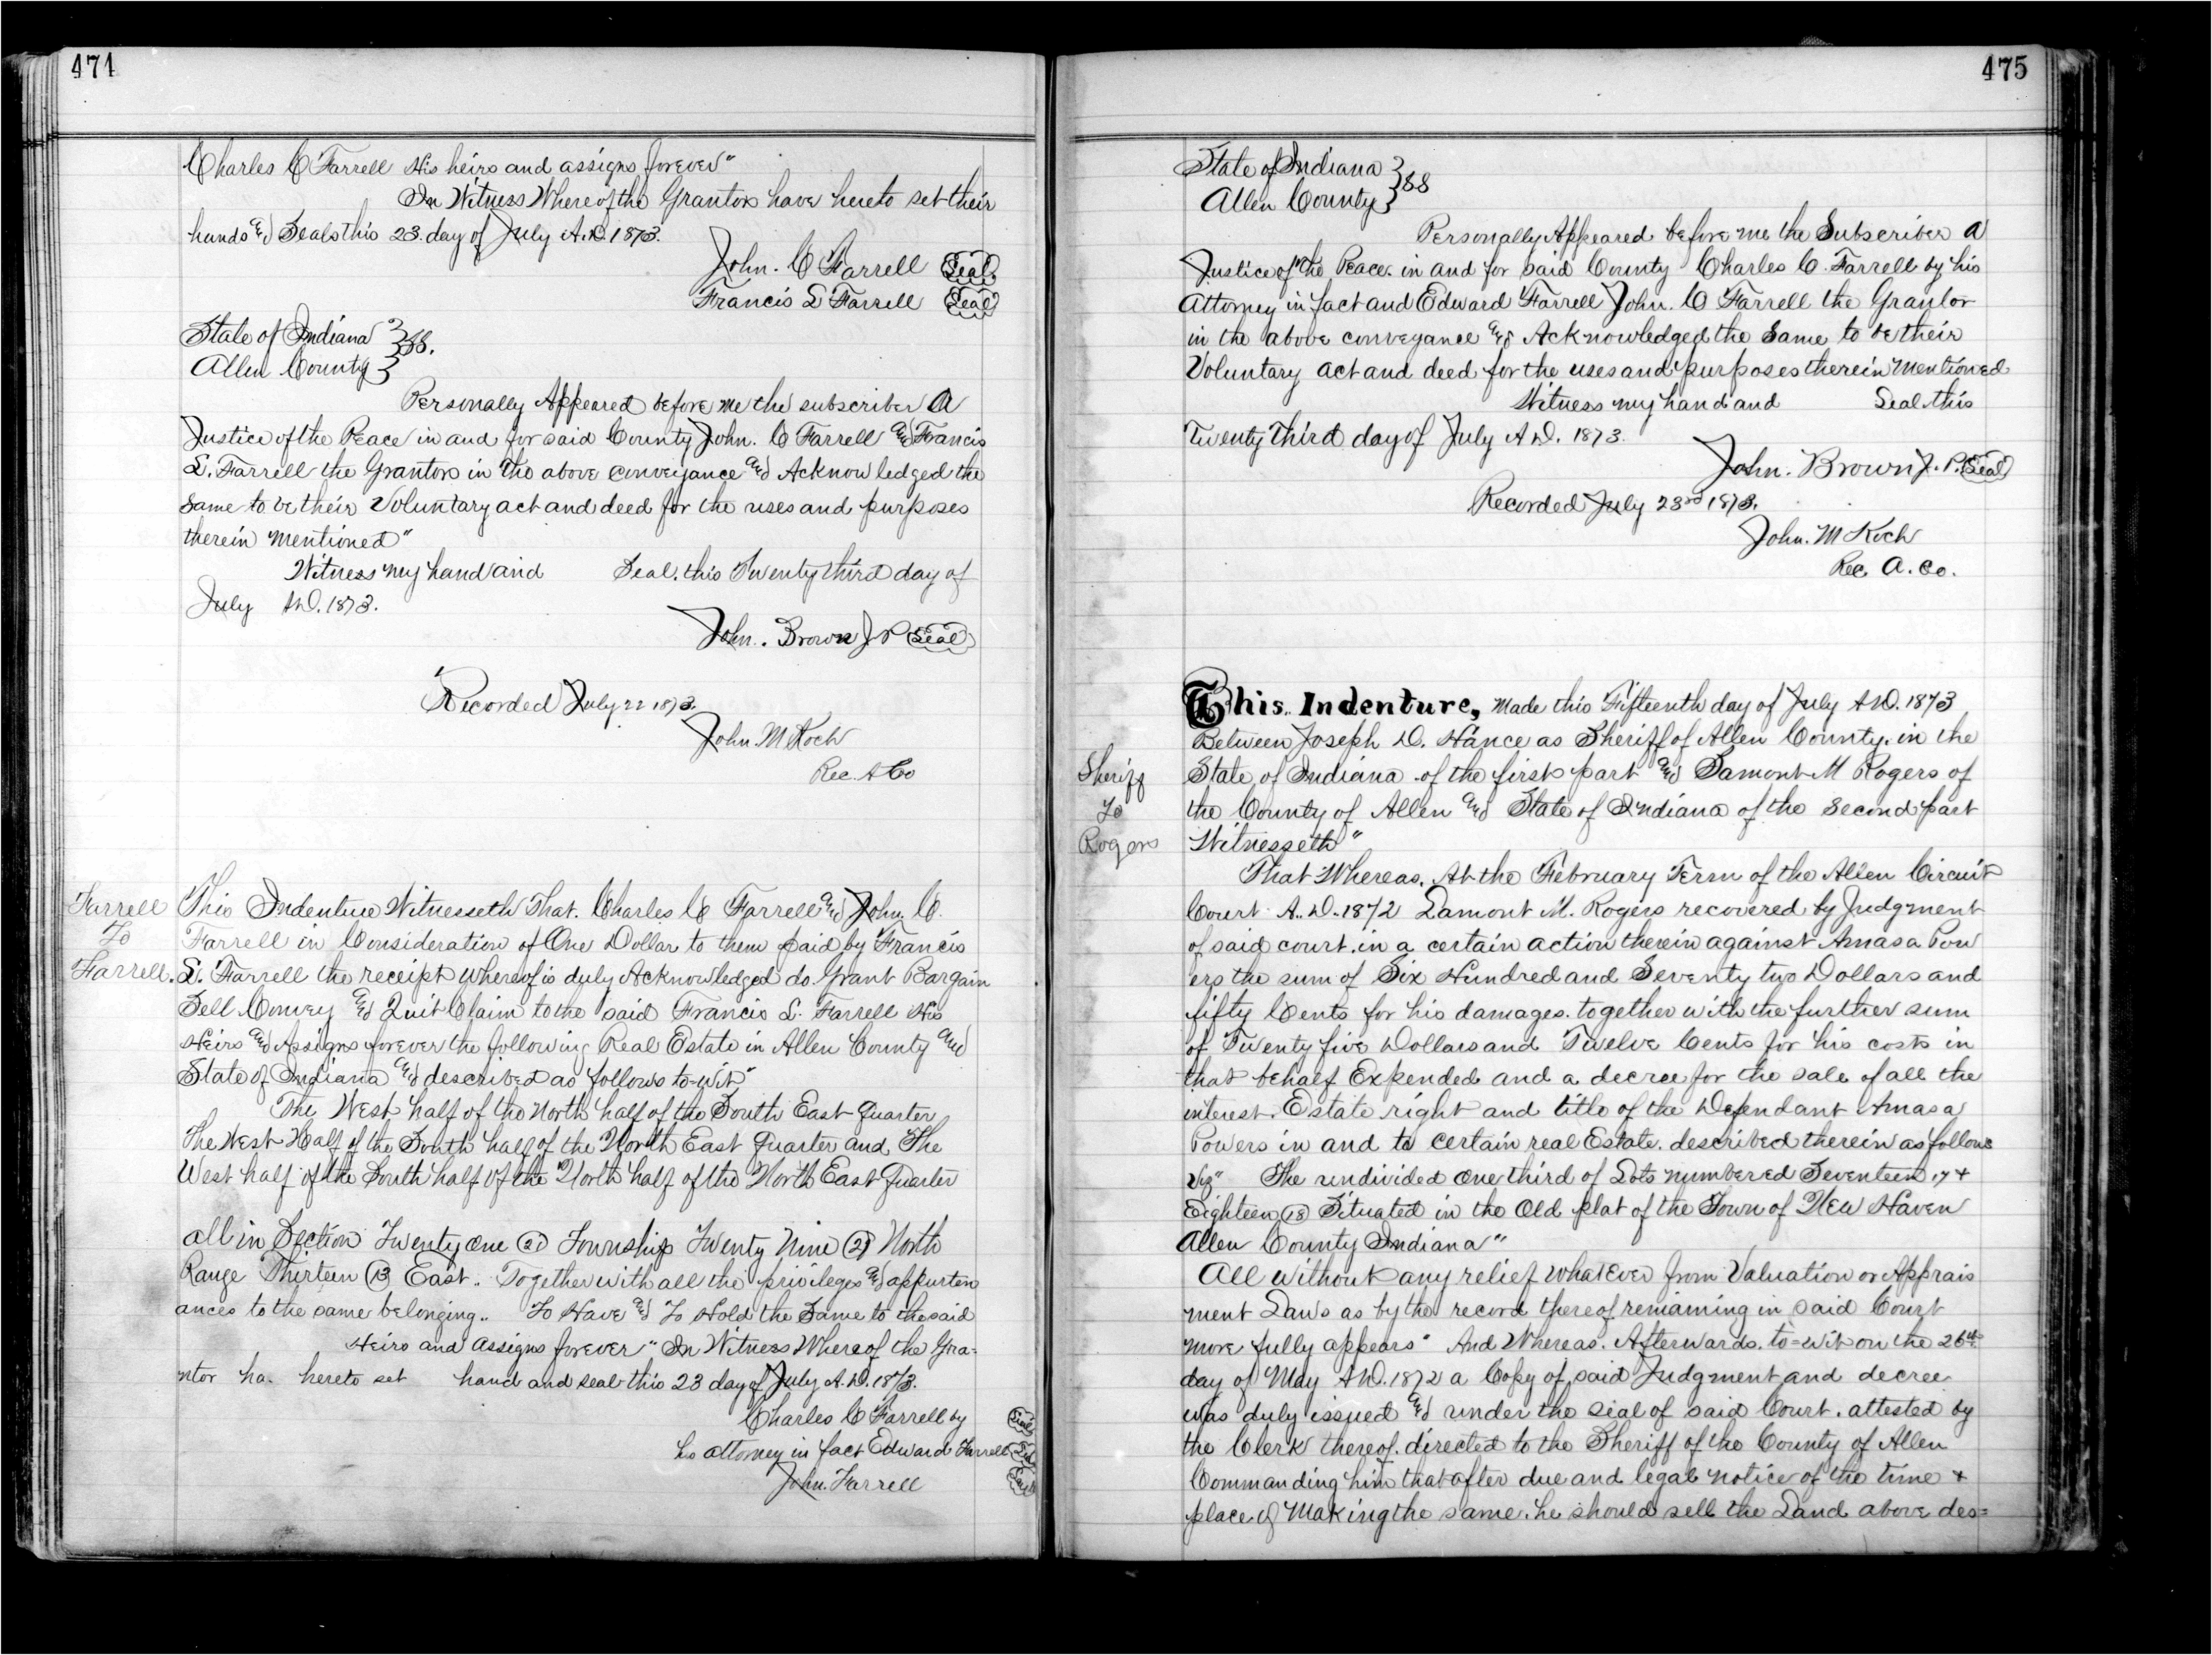 474
Charles C Farrell His heirs and assigns forever"
In Witness Whereof the Grantors have hereto set their
hands and Seals this 23. day of July A.D. 1873.
John. C Farrell Seal
Francis L Farrell Seal
State of Indiana } SS.
Allen County }
Personally Appeared before me the subscriber A
Justice of the Peace in and for said County John. C Farrell and Francis
L. Farrell the Grantors in the above conveyance and Acknowledged the
Same to be their Voluntary act and deed for the uses and purposes
therein mentioned"
Witness my hand and Seal. this Twenty third day of
July A.D. 1873.
John. Brown J P Seal
Recorded July 22 1873.
John M Koch
Rec. A Co
Farrell
To
Farrell.
This Indenture Witnesseth That. Charles C Farrell and John. C.
Farrell in Consideration of One Dollar to them paid by Francis
L. Farrell the receipt whereof is duly Acknowledged do. Grant Bargain
Sell Convey and Quit Claim to the said Francis L. Farrell His
Heirs and Assigns forever the following Real Estate in Allen County and
State of Indiana and described as follows to-wit"
The West half of the North half of the South East quarter
The West Half of the South half of the North East quarter and The
West half of the South half of the North half of the North East quarter
all in Section Twenty one 21 Township Twenty Nine 29 North
Range Thirteen 13 East.. Together with all the privileges and appurten
ances to the same belonging.. To Have and To Hold the Same to the said
Heirs and assigns forever" In Witness Whereof the Gra=
ntor ha. hereto set hand and seal this 23 day of July A.D. 1873.
Charles C Farrell by Seal
his attorney in fact Edward Farrell Seal
John. Farrell Seal
475
State of Indiana } SS
Allen County }
Personally Appeared before me the Subscriber A
Justice of the Peace. in and for said County Charles C. Farrell by his
Attorney in fact and Edward Farrell John. C Farrell the Grantor
in the above conveyance and Acknowledged the Same to be their
Voluntary act and deed for the uses and purposes therein mentioned
Witness my hand and Seal this
Twenty Third day of July A.D. 1873.
John. Brown J. P. Seal
Recorded July 23rd 1873.
John. M Koch
Rec. A. Co.
Sheriff
To
Rogers
This Indenture, Made this Fifteenth day of July A.D. 1873
Between Joseph D. Hance as Sheriff of Allen County. in the
State of Indiana of the first part and Lamont M Rogers of
the County of Allen and State of Indiana of the Second part
Witnesseth"
That Whereas. At the February Term of the Allen Circuit
Court A.D. 1872 Lamont M. Rogers recovered by Judgment
of said court. in a certain action therein against Amasa Pow
ers the sum of Six Hundred and Seventy two Dollars and
fifty Cents for his damages. together with the further sum
of Twenty five Dollars and Twelve Cents for his costs in
that behalf Expended and a decree for the sale of all the
interest. Estate right and title of the Defendant Amasa
Powers in and to certain real Estate. described therein as follows
Viz" The undivided one third of Lots numbered Seventeen 17 +
Eighteen 18 Situated in the Old plat of the Town of New Haven
Allen County Indiana"
All without any relief whatever from Valuation or Apprais
ment Laws as by the record thereof remaining in said Court
more fully appears" And Whereas. Afterwards. to=wit on the 26th
day of May A.D. 1872 a Copy of said Judgment and decree
was duly issued and under the seal of said Court. attested by
the Clerk thereof. directed to the Sheriff of the County of Allen
Commanding him that after due and legal notice of the time +
place of Making the same. he should sell the Land above des=